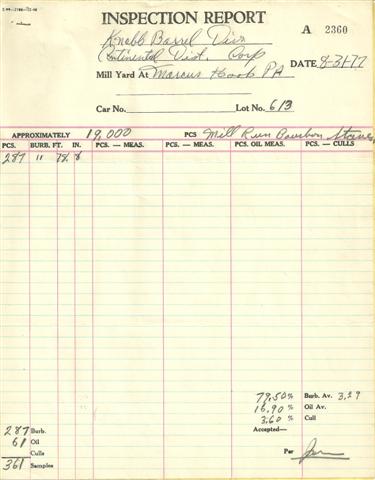 INSPECTION REPORT
A 2360
Knebb Barrel Div
Continental Dist. Corp
DATE 8-31-77
Mill Yard At Marcus Hook PA
Car No. Lot No. 613
APPROXIMATELY 19,000 PCS Mill Run Bourbon Staves
PCS. BURB. FT. IN. PCS. — MEAS. PCS. — MEAS. PCS. OIL MEAS. PCS. — CULLS
287 11 78 8
79,50% Burb. Av. 3,29
16,90 % Oil Av.
3,60 % Cull
287 Burb. Accepted—
61 Oil
Culls Per
361 Samples